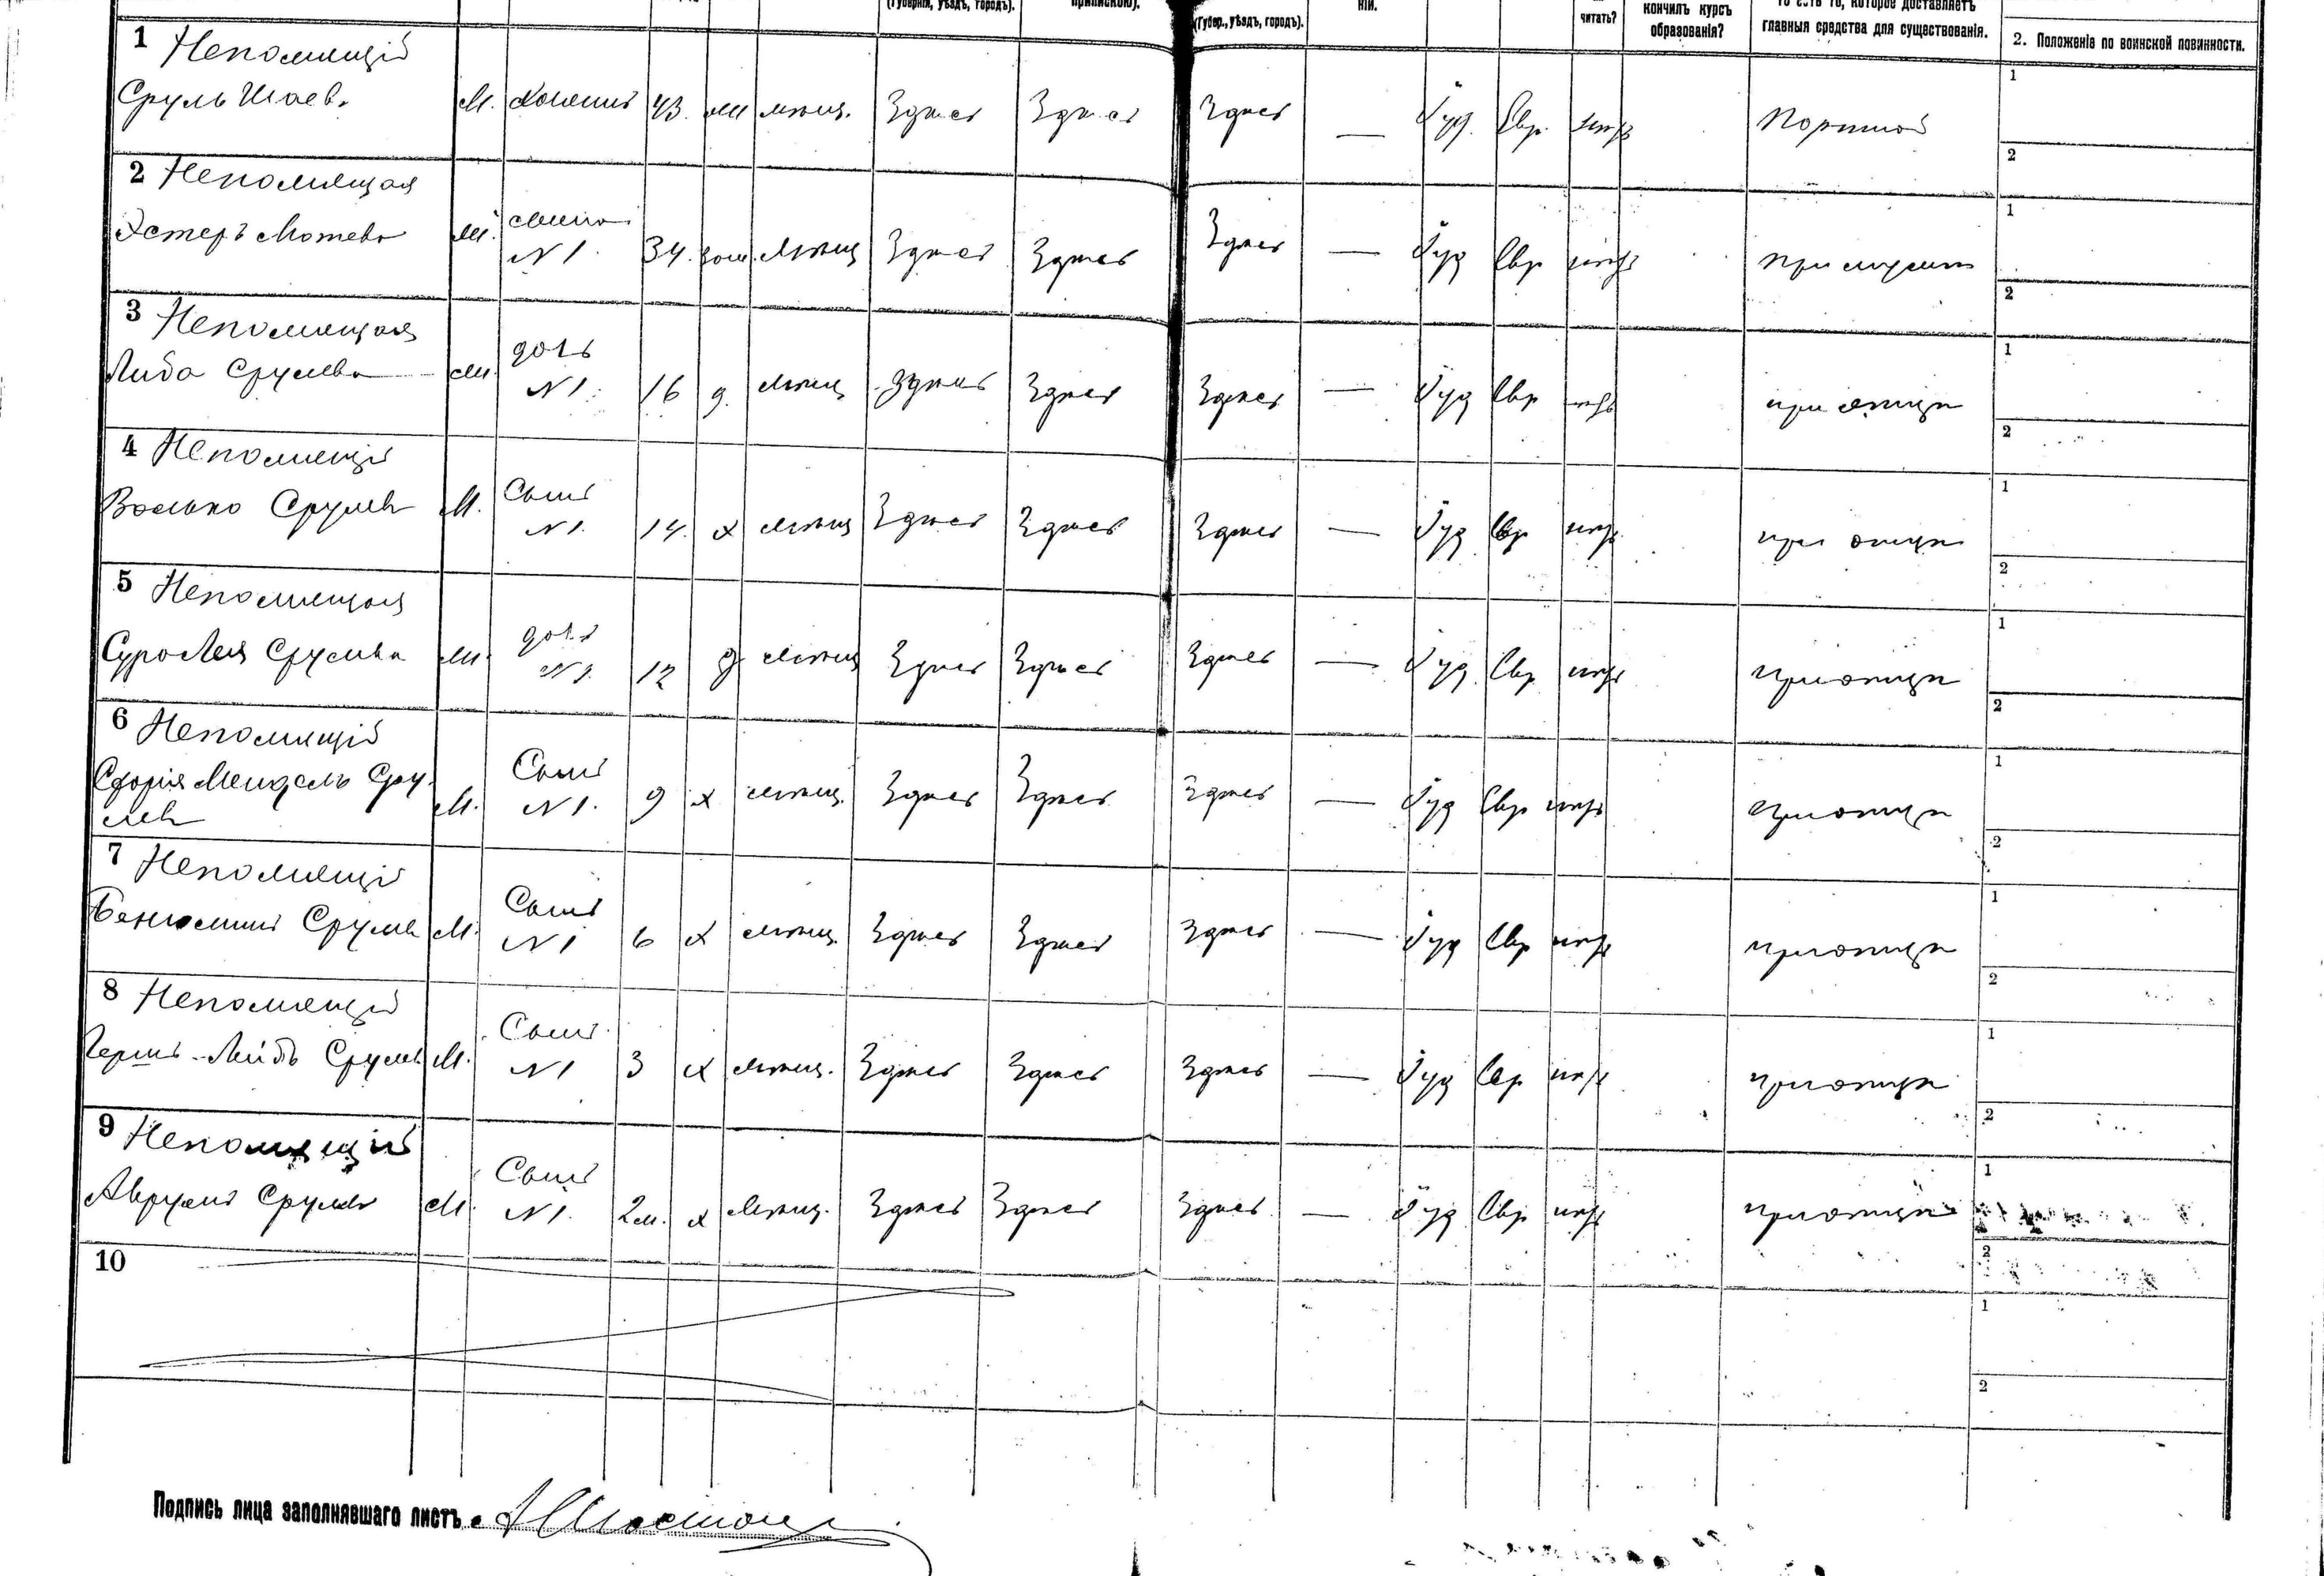 (Губернія, уѣздъ, городъ).
припискою).
(Губер., уѣздъ, городъ).
ніи.
читать?
кончилъ курсъ
образованія?
то есть то, которое доставляетъ
главныя средства для существованія.
2. Положеніе по воинской повинности.
1 Непомнящій
Сруль М. 43. мѣщ. Здѣсь Здѣсь Здѣсь — Іуд. Евр. Портной
1
2
2 Непомнящая
Эстеръ
N 1. 34. зам. мѣщ Здѣсь Здѣсь Здѣсь — Іуд Евр при мужѣ
1
2
3 Непомнящая
Либа Срулева дочь
N 1. 16 д. мѣщ Здѣсь Здѣсь Здѣсь — Іуд Евр при отцѣ
1
2
4 Непомнящій
Волько Срулев М. Сынъ
N 1. 14. х мѣщ Здѣсь Здѣсь Здѣсь — Іуд Евр при отцѣ
1
2
5 Непомнящая
Сура Лея Срулева дочь
N 1. 12 д мѣщ Здѣсь Здѣсь Здѣсь — Іуд. Евр при отцѣ
1
2
6 Непомнящій
Мендель Сру-
лев М. Сынъ
N 1. 9 х мѣщ. Здѣсь Здѣсь Здѣсь — Іуд Евр при отцѣ
1
2
7 Непомнящій
Беніоминъ Срулев М. Сынъ
N 1 6 х мѣщ. Здѣсь Здѣсь Здѣсь — Іуд Евр при отцѣ
1
2
8 Непомнящій
Гершъ-Лейбъ Срулев М. Сынъ
N 1 3 х мѣщ. Здѣсь Здѣсь Здѣсь — Іуд Евр при отцѣ
1
2
9 Непомнящій
Аврумъ Срулев М. Сынъ
N 1. 2 м. х мѣщ. Здѣсь Здѣсь Здѣсь — Іуд Евр при отцѣ
1
2
10
1
2
Подпись лица заполнявшаго листъ